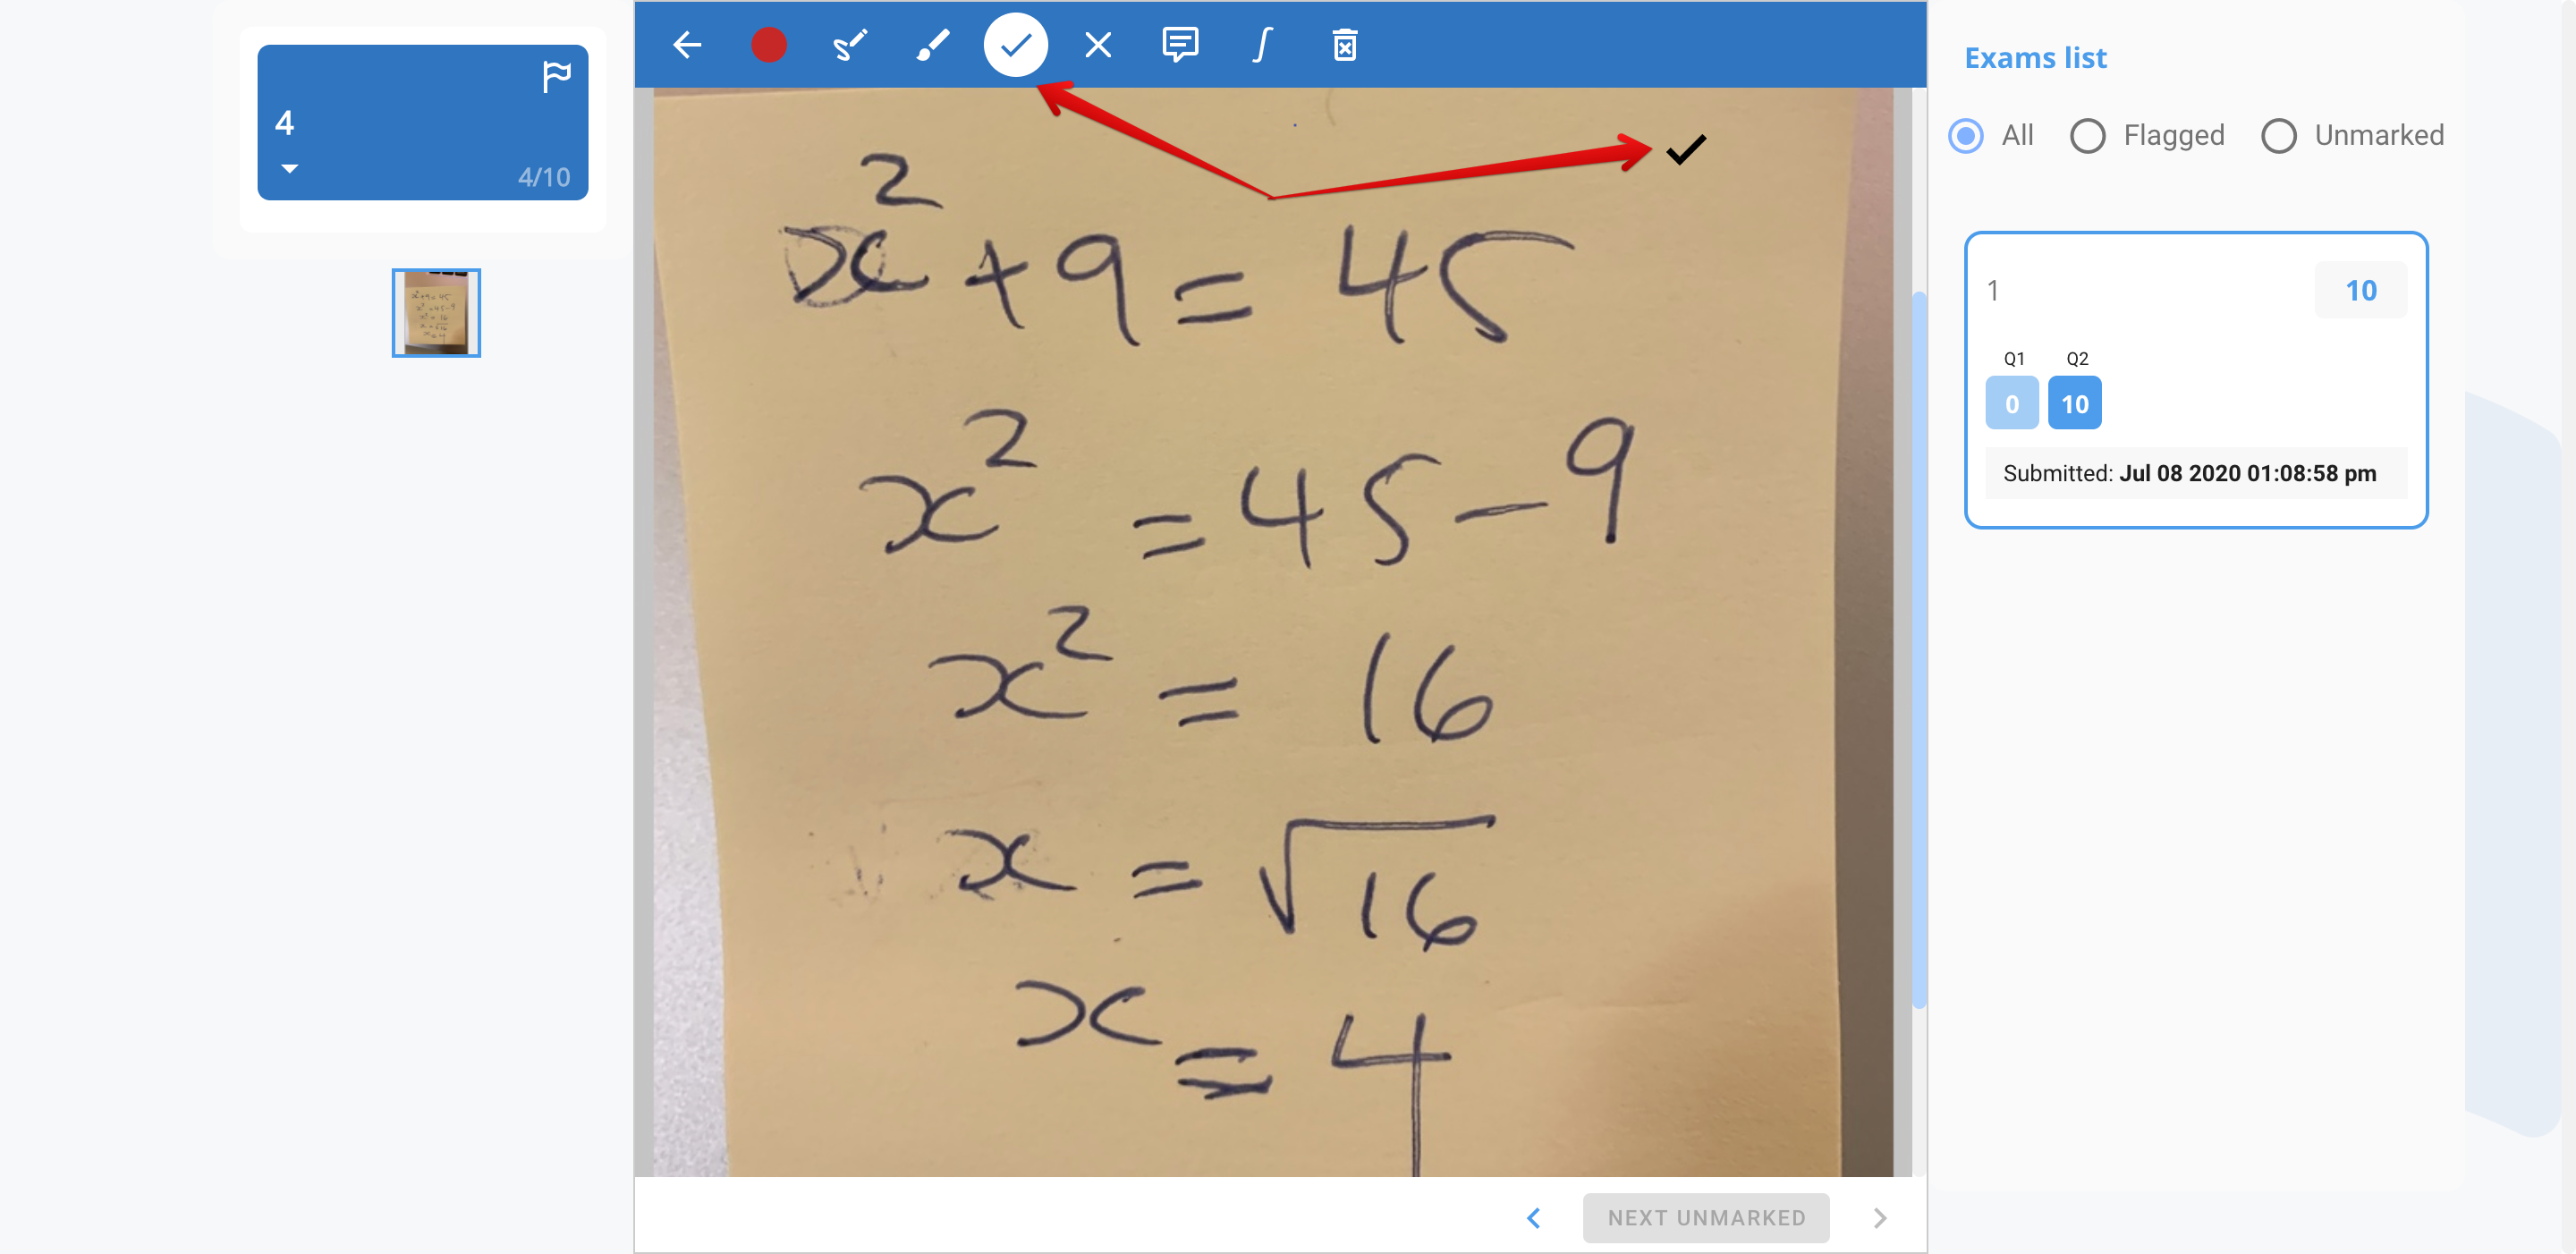 4
4/10
x²+9=45
x²=45-9
x²=16
x=√16
x=4
NEXT UNMARKED
Exams list
All Flagged Unmarked
1 10
Q1 Q2
0 10
Submitted: Jul 08 2020 01:08:58 pm